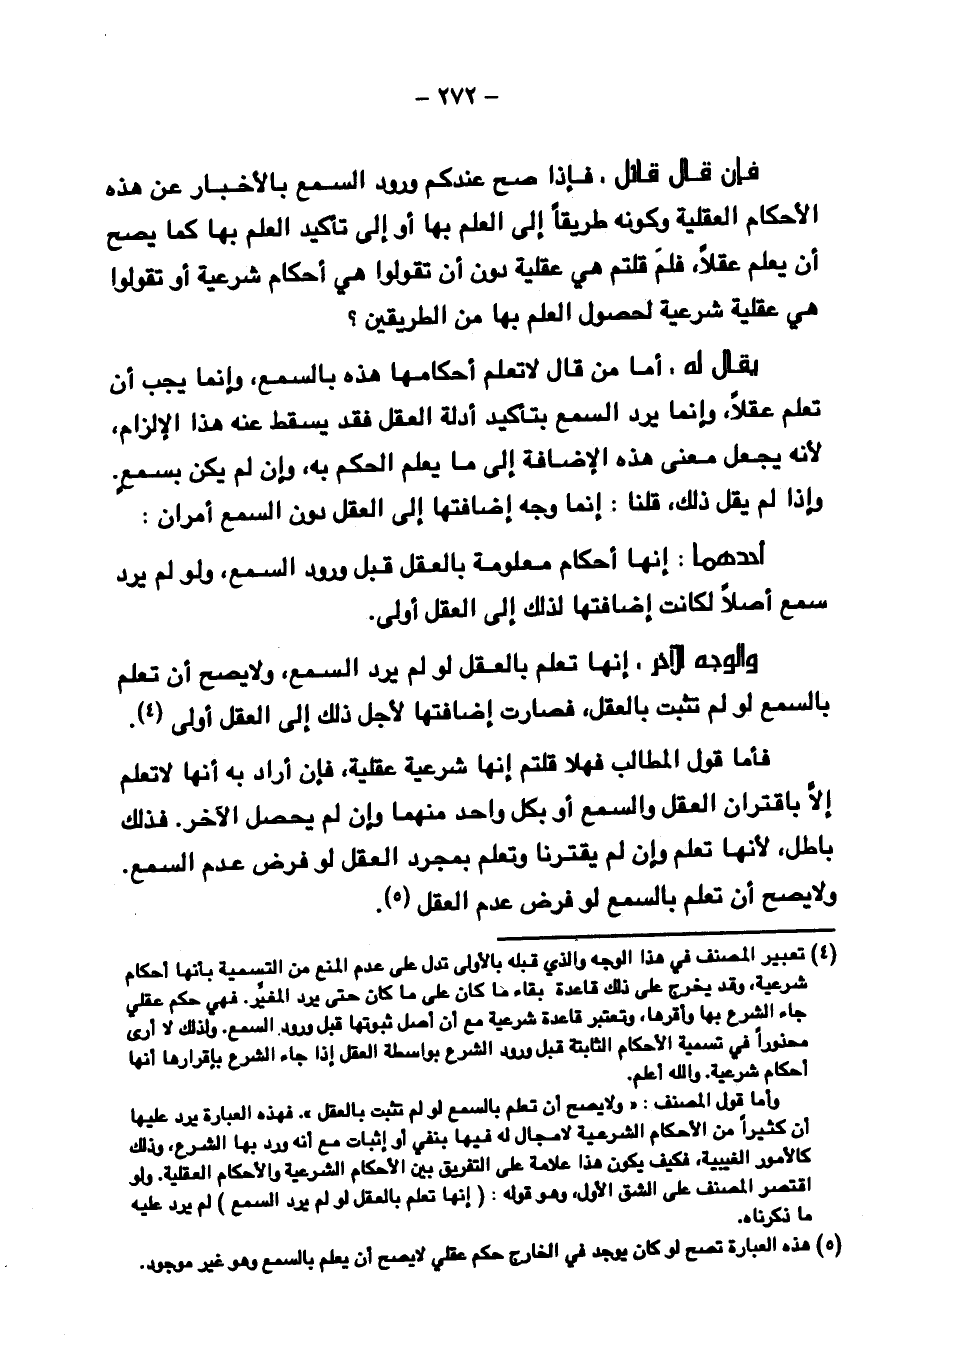 - ٢٧٢ -
فإن قال قائل . فإذا صح عندكم ورود السمع بالأخبار عن هذه
الأحكام العقلية وكونه طريقاً إلى العلم بها أو إلى تأكيد العلم بها كما يصح
أن يعلم عقلاً، فلمَ قلتم هي عقلية دون أن تقولوا هي أحكام شرعية أو تقولوا
هي عقلية شرعية لحصول العلم بها من الطريقين ؟
يقال له . أما من قال لاتعلم أحكامها هذه بالسمع، وإنما يجب أن
تعلم عقلاً، وإنما يرد السمع بتأكيد أدلة العقل فقد يسقط عنه هذا الإلزام،
لأنه يجعل معنى هذه الإضافة إلى ما يعلم الحكم به، وإن لم يكن بسمعٍ.
وإذا لم يقل ذلك، قلنا : إنما وجه إضافتها إلى العقل دون السمع أمران :
أحدهما : إنها أحكام معلومة بالعقل قبل ورود السمع، ولو لم يرد
سمع أصلاً لكانت إضافتها لذلك إلى العقل أولى.
والوجه الآخر . إنها تعلم بالعقل لو لم يرد السمع، ولايصح أن تعلم
بالسمع لو لم تثبت بالعقل، فصارت إضافتها لأجل ذلك إلى العقل أولى (٤).
فأما قول المطالب فهلا قلتم إنها شرعية عقلية، فإن أراد به أنها لاتعلم
إلاَّ باقتران العقل والسمع أو بكل واحد منهما وإن لم يحصل الآخر. فذلك
باطل، لأنها تعلم وإن لم يقترنا وتعلم بمجرد العقل لو فرض عدم السمع.
ولايصح أن تعلم بالسمع لو فرض عدم العقل (٥).
(٤) تعبير المصنف في هذا الوجه والذي قبله بالأولى تدل على عدم المنع من التسمية بأنها أحكام
شرعية، وقد يخرج على ذلك قاعدة بقاء ما كان على ما كان حتى يرد المغيِّر. فهي حكم عقلي
جاء الشرع بها وأقرها، وتعتبر قاعدة شرعية مع أن أصل ثبوتها قبل ورود السمع. ولذلك لا أرى
محذوراً في تسمية الأحكام الثابتة قبل ورود الشرع بواسطة العقل إذا جاء الشرع بإقرارها أنها
أحكام شرعية. والله أعلم.
وأما قول المصنف : « ولايصح أن تعلم بالسمع لو لم تثبت بالعقل ». فهذه العبارة يرد عليها
أن كثيراً من الأحكام الشرعية لامجال له فيها بنفي أو إثبات مع أنه ورد بها الشرع، وذلك
كالأمور الغيبية، فكيف يكون هذا علامة على التفريق بين الأحكام الشرعية والأحكام العقلية. ولو
اقتصر المصنف على الشق الأول، وهو قوله : ( إنها تعلم بالعقل لو لم يرد السمع ) لم يرد عليه
ما ذكرناه.
(٥) هذه العبارة تصح لو كان يوجد في الخارج حكم عقلي لايصح أن يعلم بالسمع وهو غير موجود.